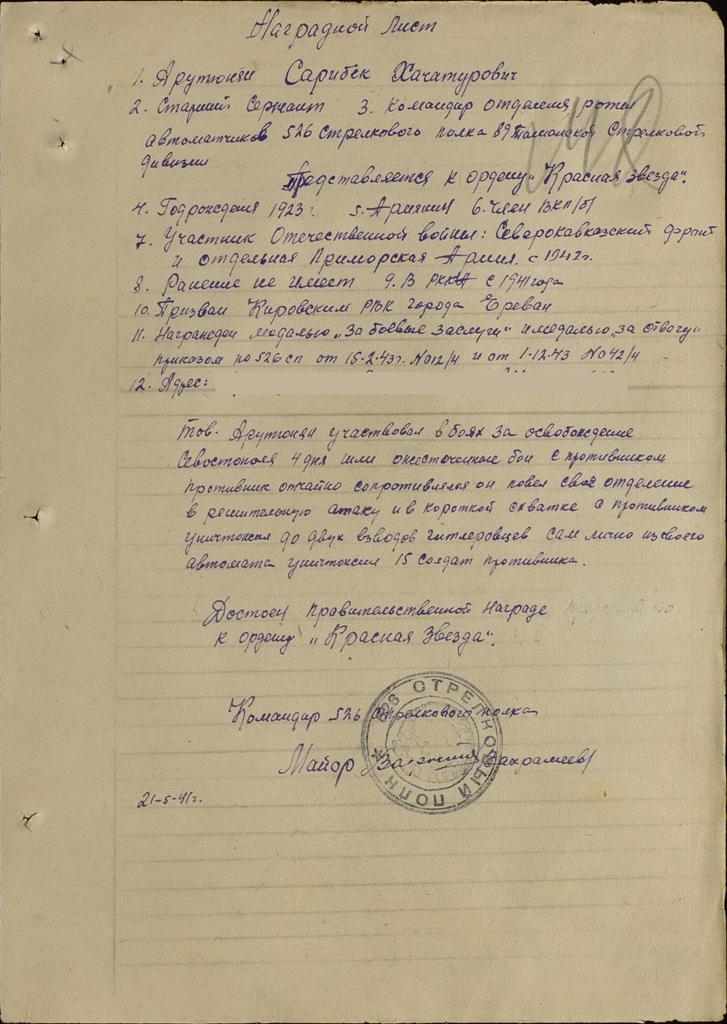 Наградной Лист
1. Арутюнян Сарибек Хачатурович
2. Старший Сержант 3. Командир отделения роты
автоматчиков 526 Стрелкового полка 89 Таманской Стрелковой
дивизии
Представляется к ордену „Красная Звезда“.
4. Год рождения 1923 г. 5. Армянин 6. Член ВКП/б/
7. Участник Отечественной войны: Северокавказский фронт
и отдельная Приморская Армия. с 1942 г.
8. Ранение не имеет 9. В РККА с 1941 года
10. Призван Кировским РВК города Ереван
11. Награжден медалью „За боевые заслуги“ и медалью „за отвагу“
приказом по 526 сп от 15-2-43 г. No 012/н и от 1-12-43 No 42/н
12. Адрес:
Тов. Арутюнян участвовал в боях за освобождение
Севостополя 4 дня шли ожесточенные бои с противником
противник отчаяно сопротивлялся он повел своё отделение
в решительную атаку и в короткой схватке с противником
уничтожил до двух взводов гитлеровцев сам лично из своего
автомата уничтожил 15 солдат противника.
Достоен Правительственной Награде
к ордену „Красная Звезда“.
Командир 526 Стрелкового полка
Майор /Бахрамеев/
526 СТРЕЛКОВЫЙ ПОЛК
21-5-41 г.